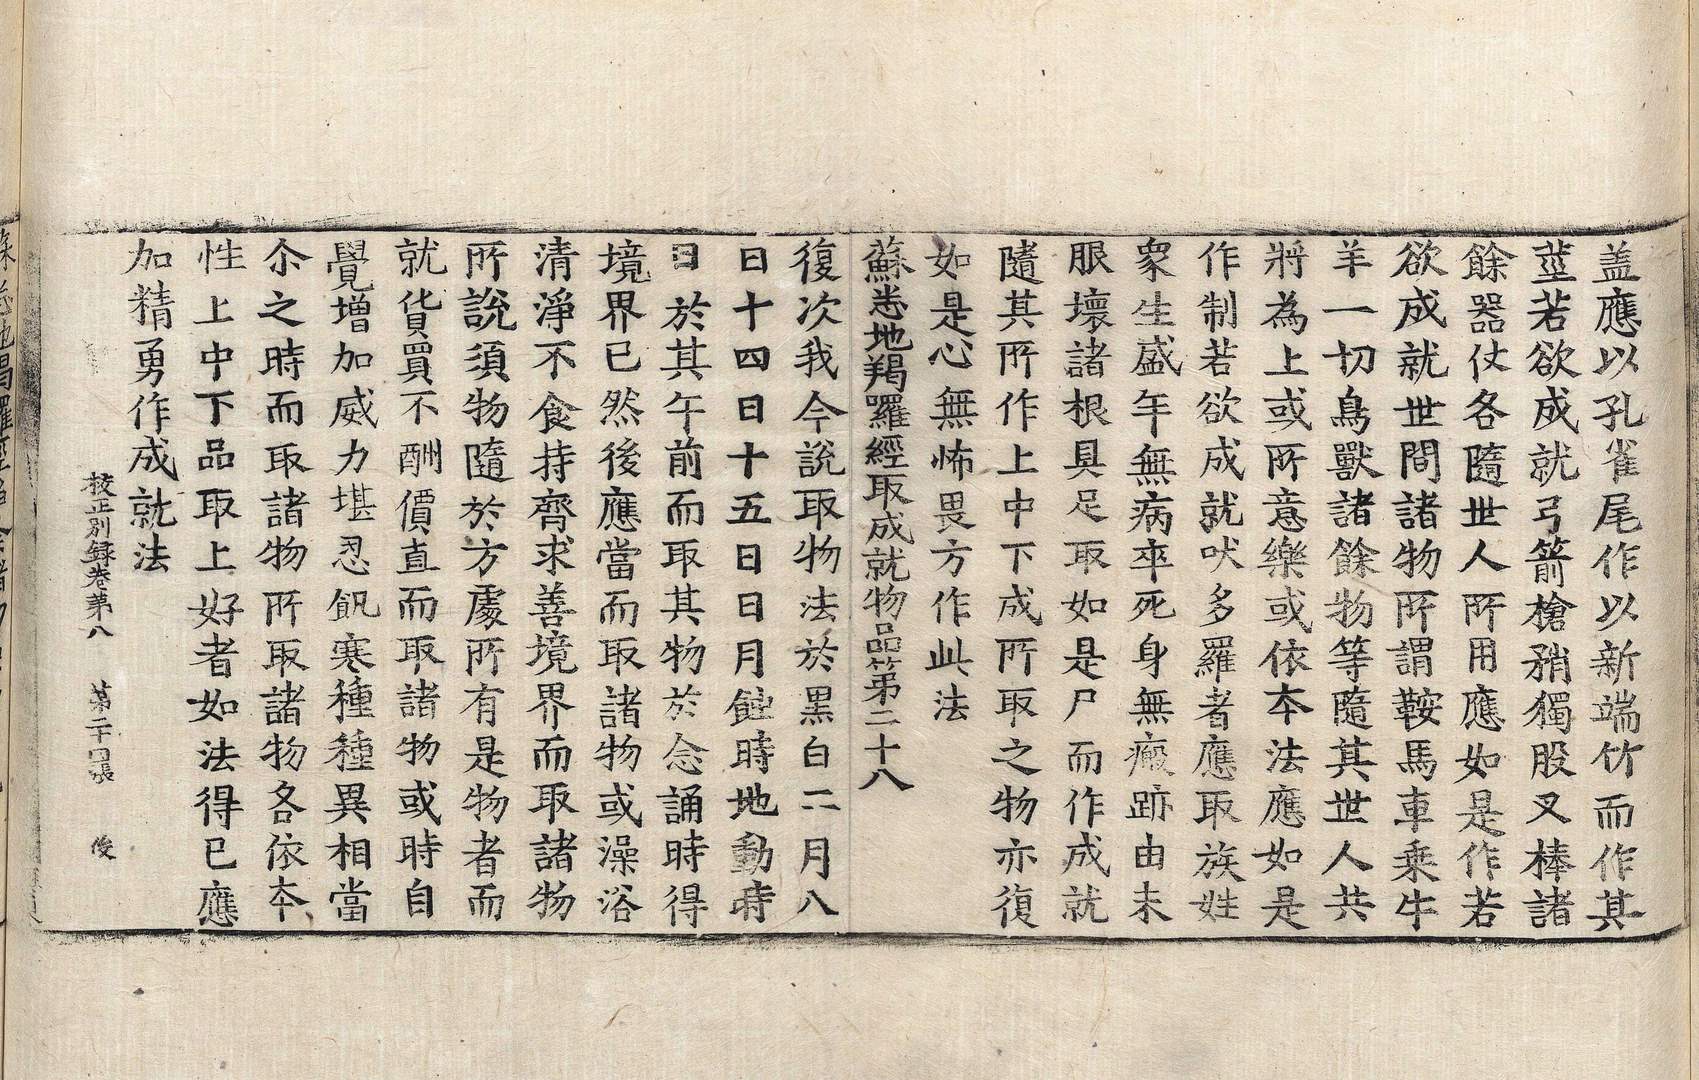 盖應以孔雀尾作以新端竹而作其
莖若欲成就弓箭槍矟獨股叉棒諸
餘器仗各隨世人所用應如是作若
欲成就世間諸物所謂鞍馬車乘牛
羊一切鳥獸諸餘物等隨其世人共
將為上或所意樂或依本法應如是
作制若欲成就吠多羅者應取族姓
衆生盛年無病卒死身無瘢跡由未
服壞諸根具足取如是尸而作成就
隨其所作上中下成所取之物亦復
如是心無怖畏方作此法
蘇悉地羯羅經取成就物品第二十八
復次我今說取物法於黑白二月八
日十四日十五日日月蝕時地動時
日於其午前而取其物於念誦時得
境界已然後應當而取諸物或澡浴
清淨不食持齊求善境界而取諸物
所說須物隨於方處所有是物者而
就貨買不酬價直而取諸物或時自
覺增加威力堪忍飢寒種種異相當
尒之時而取諸物所取諸物各依本
性上中下品取上好者如法得已應
加精勇作成就法
校正別録卷第八 第二十張 俊